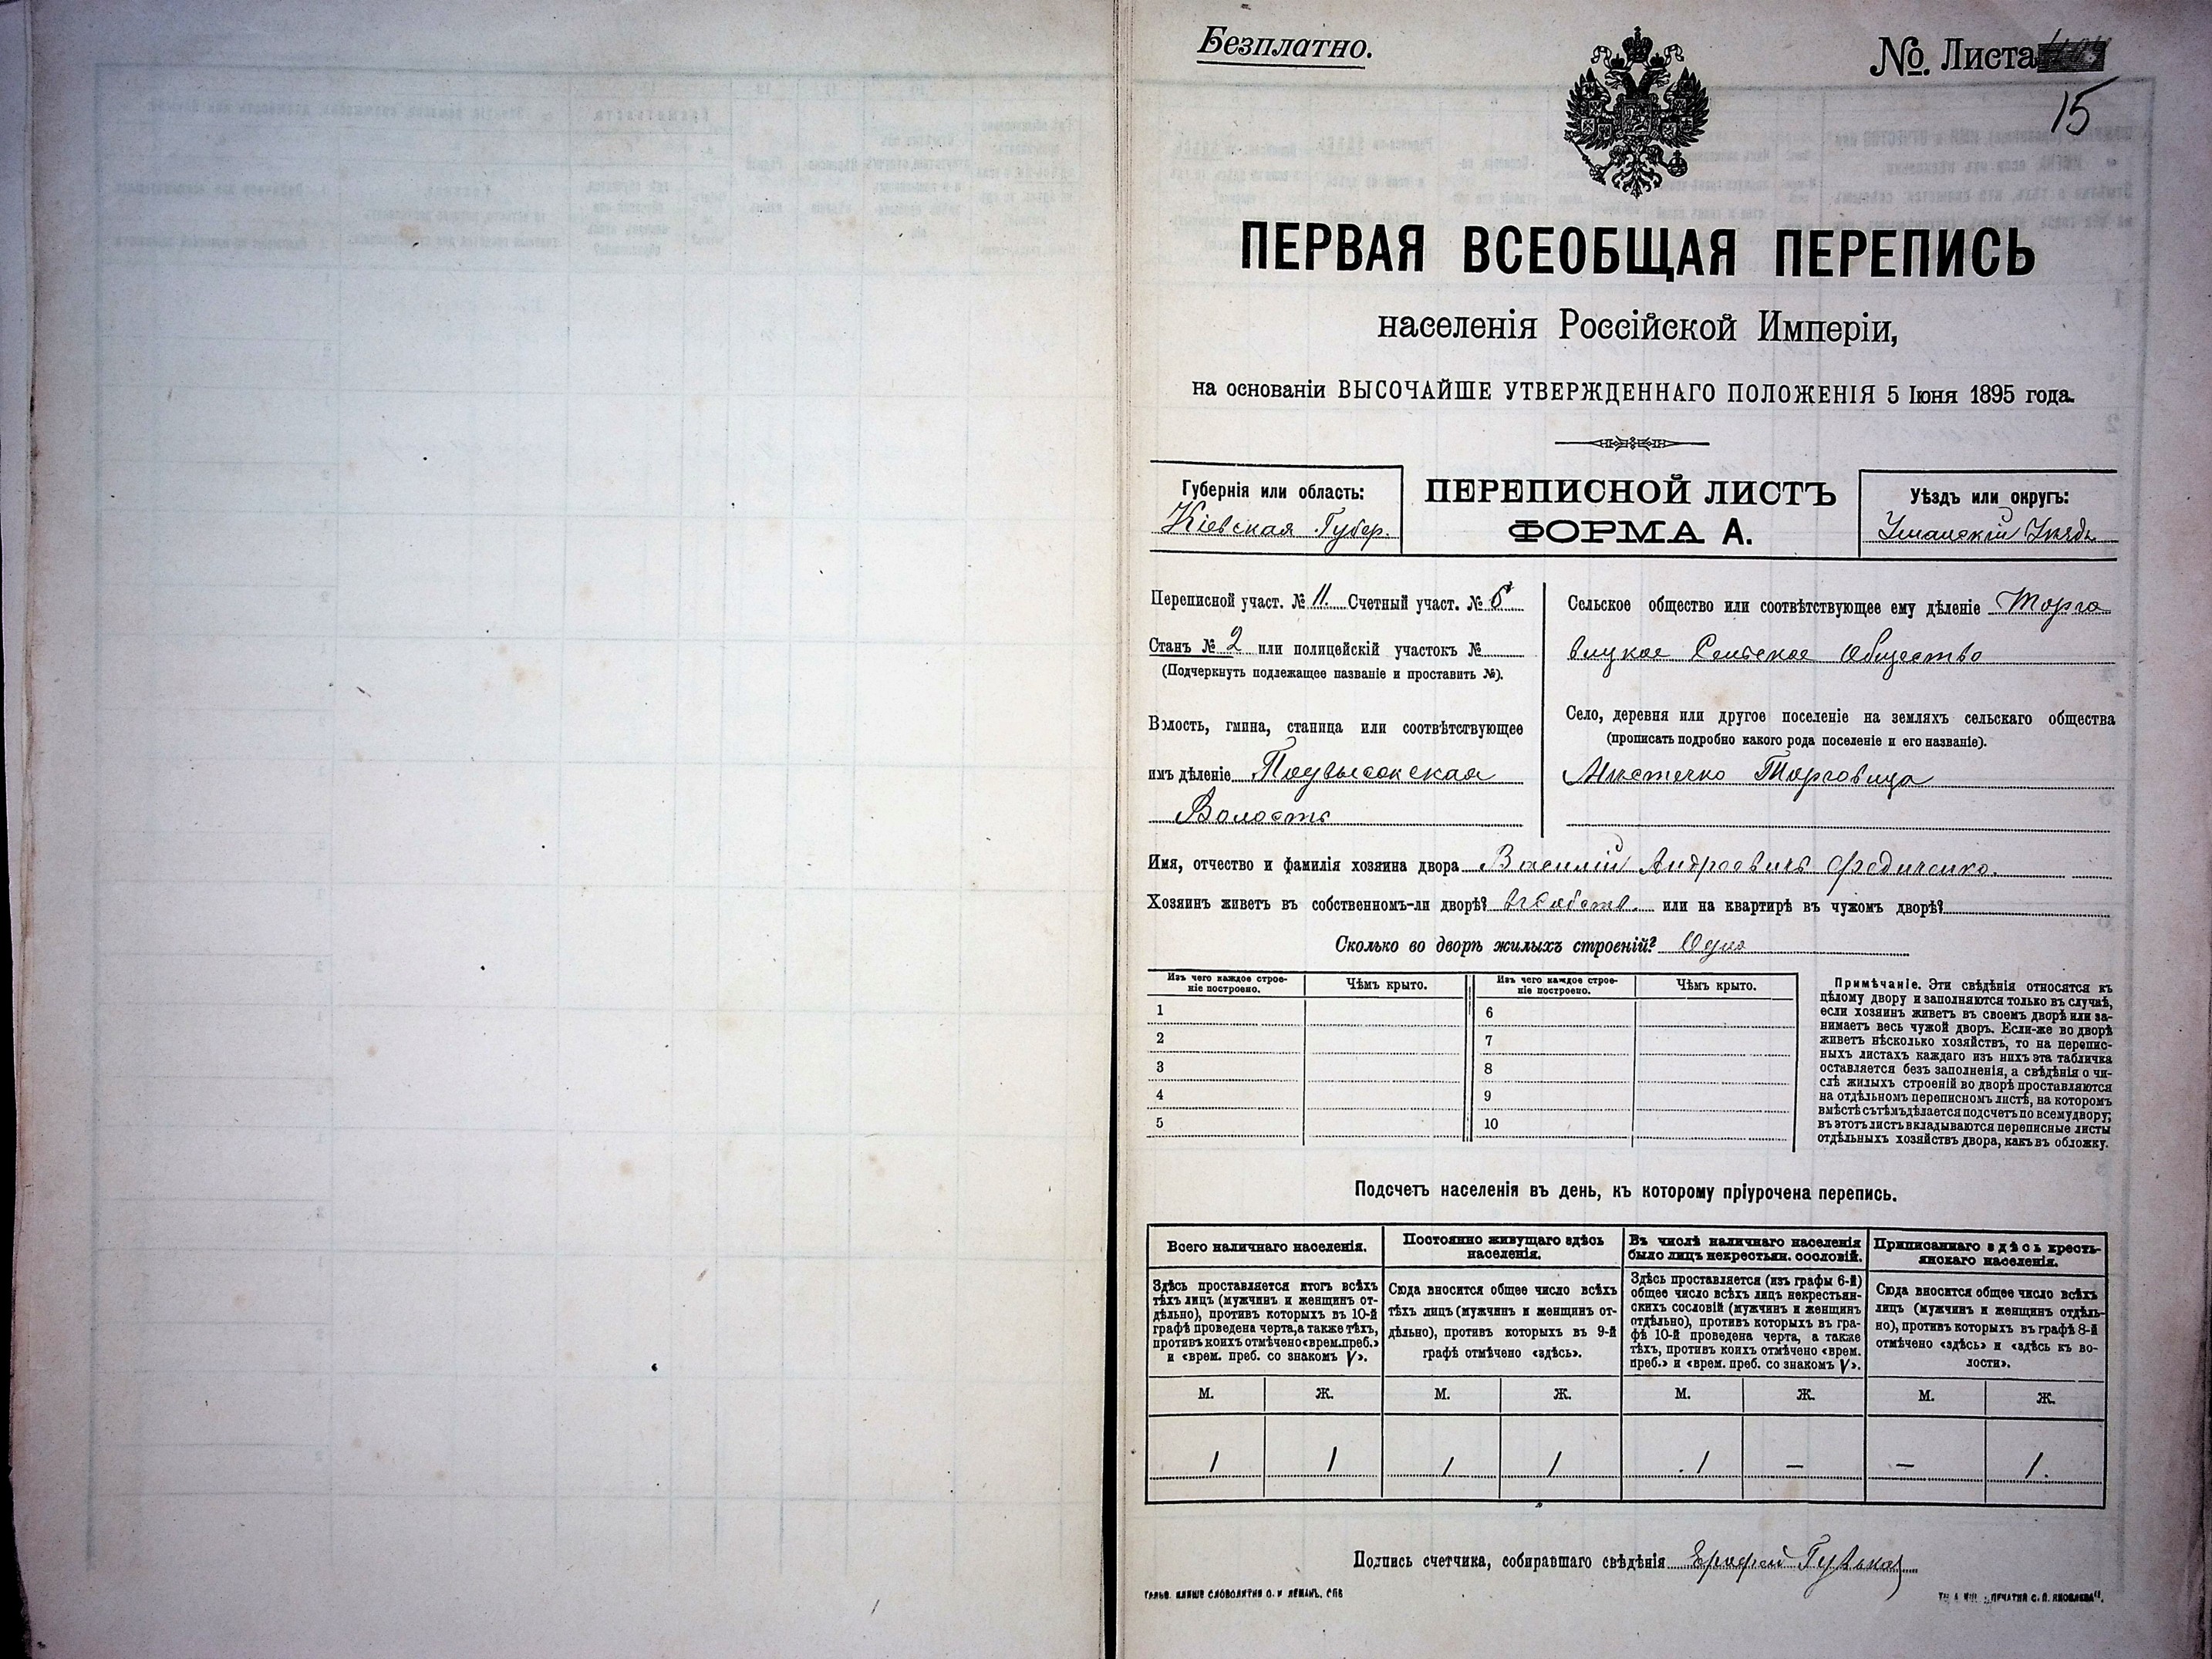 Безплатно.
№ Листа
15
ПЕРВАЯ ВСЕОБЩАЯ ПЕРЕПИСЬ
населенія Россійской Имперіи,
на основаніи ВЫСОЧАЙШЕ УТВЕРЖДЕННАГО ПОЛОЖЕНІЯ 5 Іюня 1895 года.
Губернія или область:
Кіевская Губер.
ПЕРЕПИСНОЙ ЛИСТЪ
ФОРМА А.
Уѣздъ или округъ:
Уманскій Уѣздъ
Переписной участ. № 11. Счетный участ. № 5
Станъ № 2 или полицейскій участокъ №
(Подчеркнуть подлежащее названіе и проставить №).
Волость, гмина, станица или соотвѣтствующее
имъ дѣленіе Подвысокская
Волость
Сельское общество или соотвѣтствующее ему дѣленіе Торго
вицкое Сельское Общество
Село, деревня или другое поселеніе на земляхъ сельскаго общества
(прописать подробно какого рода поселеніе и его названіе).
Мѣстечко Торговица
Имя, отчество и фамилія хозяина двора Василій Андреевичъ
Хозяинъ живетъ въ собственномъ-ли дворѣ? въ Собств. или на квартирѣ въ чужомъ дворѣ?
Сколько во дворѣ жилыхъ строеній? Одно
Изъ чего каждое строе-
ніе построено.
Чѣмъ крыто.
Изъ чего каждое строе-
ніе построено.
Чѣмъ крыто.
1 6
2 7
3 8
4 9
5 10
Примѣчаніе. Эти свѣдѣнія относятся къ
цѣлому двору и заполняются только въ случаѣ,
если хозяинъ живетъ въ своемъ дворѣ или за-
нимаетъ весь чужой дворъ. Если-же во дворѣ
живетъ нѣсколько хозяйствъ, то на перепис-
ныхъ листахъ каждаго изъ нихъ эта табличка
оставляется безъ заполненія, а свѣдѣнія о чи-
слѣ жилыхъ строеній во дворѣ проставляются
на отдѣльномъ переписномъ листѣ, на которомъ
вмѣстѣ съ тѣмъ дѣлается подсчетъ по всему двору;
въ этотъ листъ вкладываются переписные листы
отдѣльныхъ хозяйствъ двора, какъ въ обложку.
Подсчетъ населенія въ день, къ которому пріурочена перепись.
Всего наличнаго населенія.
Здѣсь проставляется итогъ всѣхъ
тѣхъ лицъ (мужчинъ и женщинъ от-
дѣльно), противъ которыхъ въ 10-й
графѣ проведена черта, а также тѣхъ,
противъ коихъ отмѣчено «врем. преб.»
и «врем. преб. со знакомъ V».
Постоянно живущаго здѣсь
населенія.
Сюда вносится общее число всѣхъ
тѣхъ лицъ (мужчинъ и женщинъ от-
дѣльно), противъ которыхъ въ 9-й
графѣ отмѣчено «здѣсь».
Въ числѣ наличнаго населенія
было лицъ некрестьян. сословій.
Здѣсь проставляется (изъ графы 6-й)
общее число всѣхъ лицъ некрестьян-
скихъ сословій (мужчинъ и женщинъ
отдѣльно), противъ которыхъ въ гра-
фѣ 10-й проведена черта, а также
тѣхъ, противъ коихъ отмѣчено «врем.
преб.» и «врем. преб. со знакомъ V».
Приписаннаго здѣсь кресть-
янскаго населенія.
Сюда вносится общее число всѣхъ
лицъ (мужчинъ и женщинъ отдѣль-
но), противъ которыхъ въ графѣ 8-й
отмѣчено «здѣсь» и «здѣсь къ во-
лости».
М. Ж. М. Ж. М. Ж. М. Ж.
1 1 1 1 . 1 — — 1.
Подпись счетчика, собиравшаго свѣдѣнія